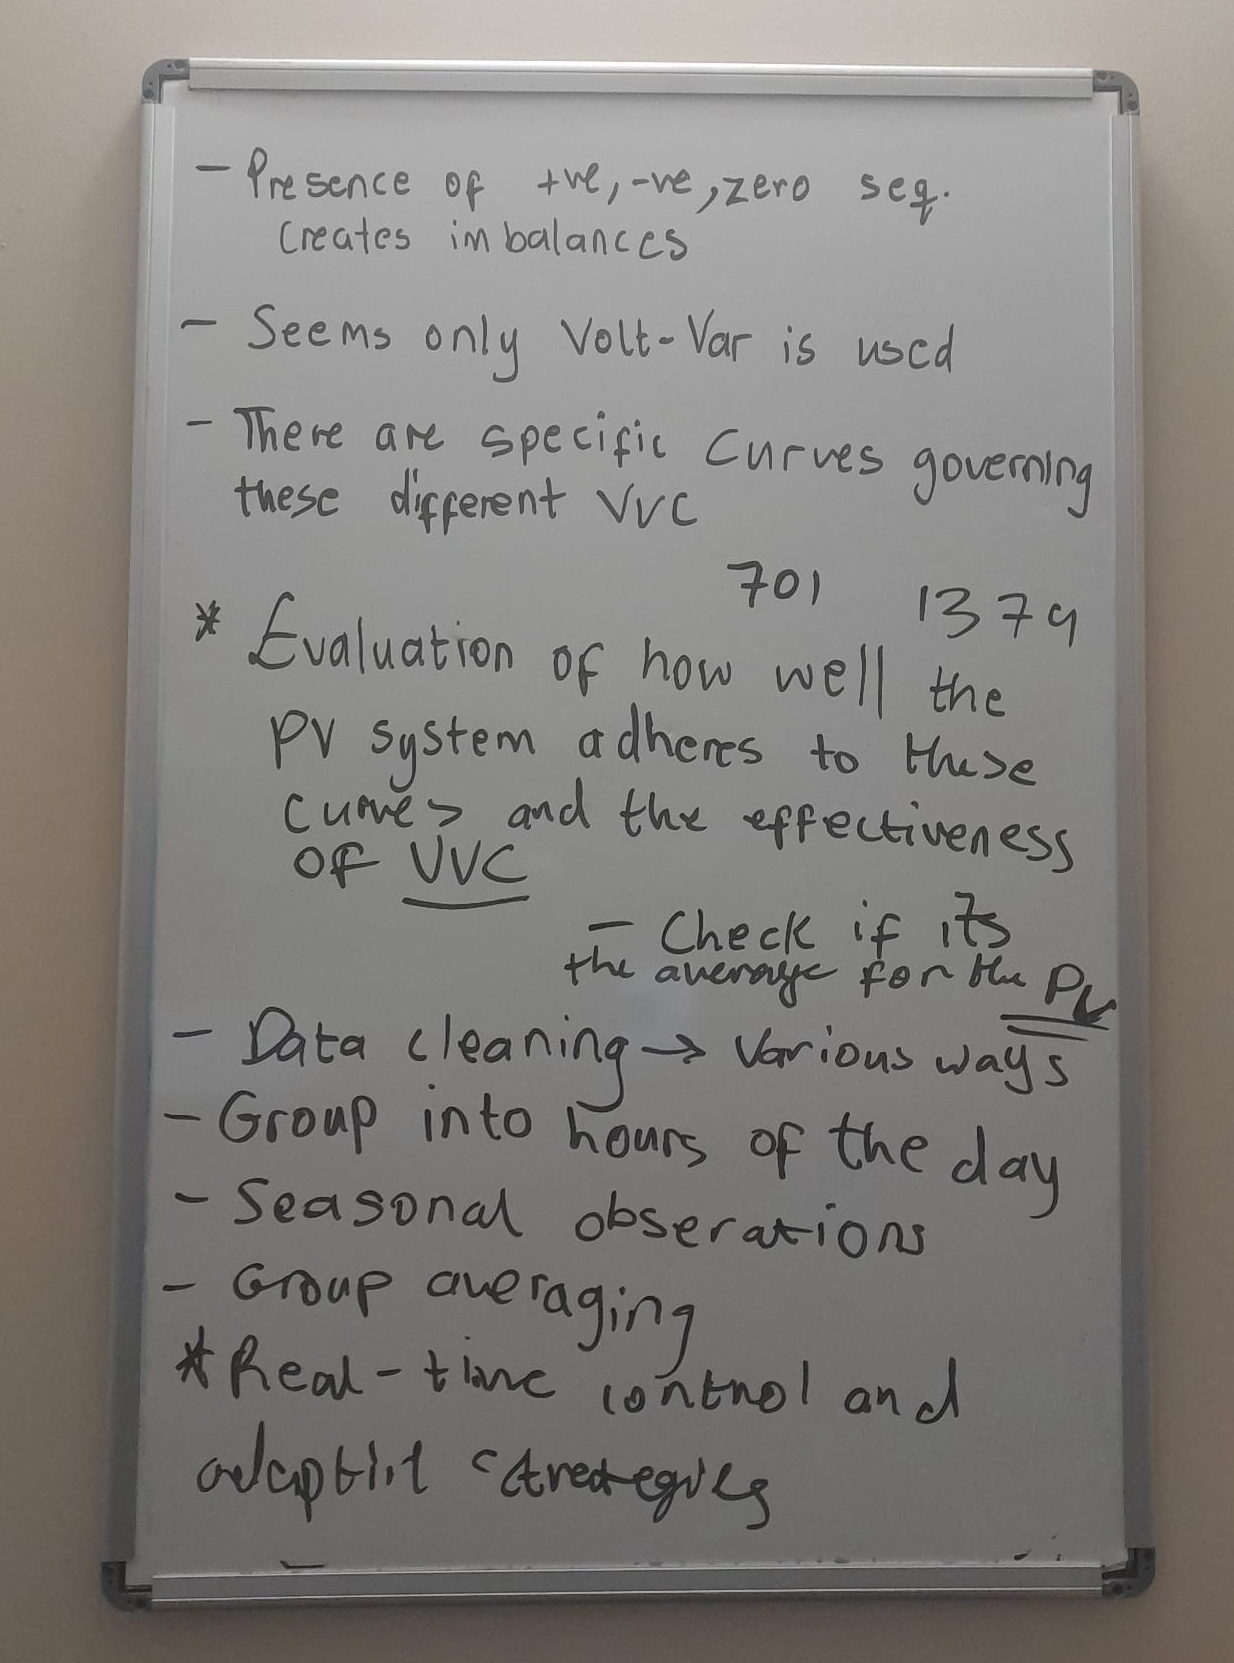 - Presence of +ve, -ve, zero seq.
creates imbalances
- Seems only Volt-Var is used
- There are specific curves governing
these different VVC
701 1379
* Evaluation of how well the
PV system adheres to these
curves and the effectiveness
of VVC
- Check if its
the average for the PV
- Data cleaning → Various ways
- Group into hours of the day
- Seasonal obserations
- Group averaging
* Real-time control and
strategies